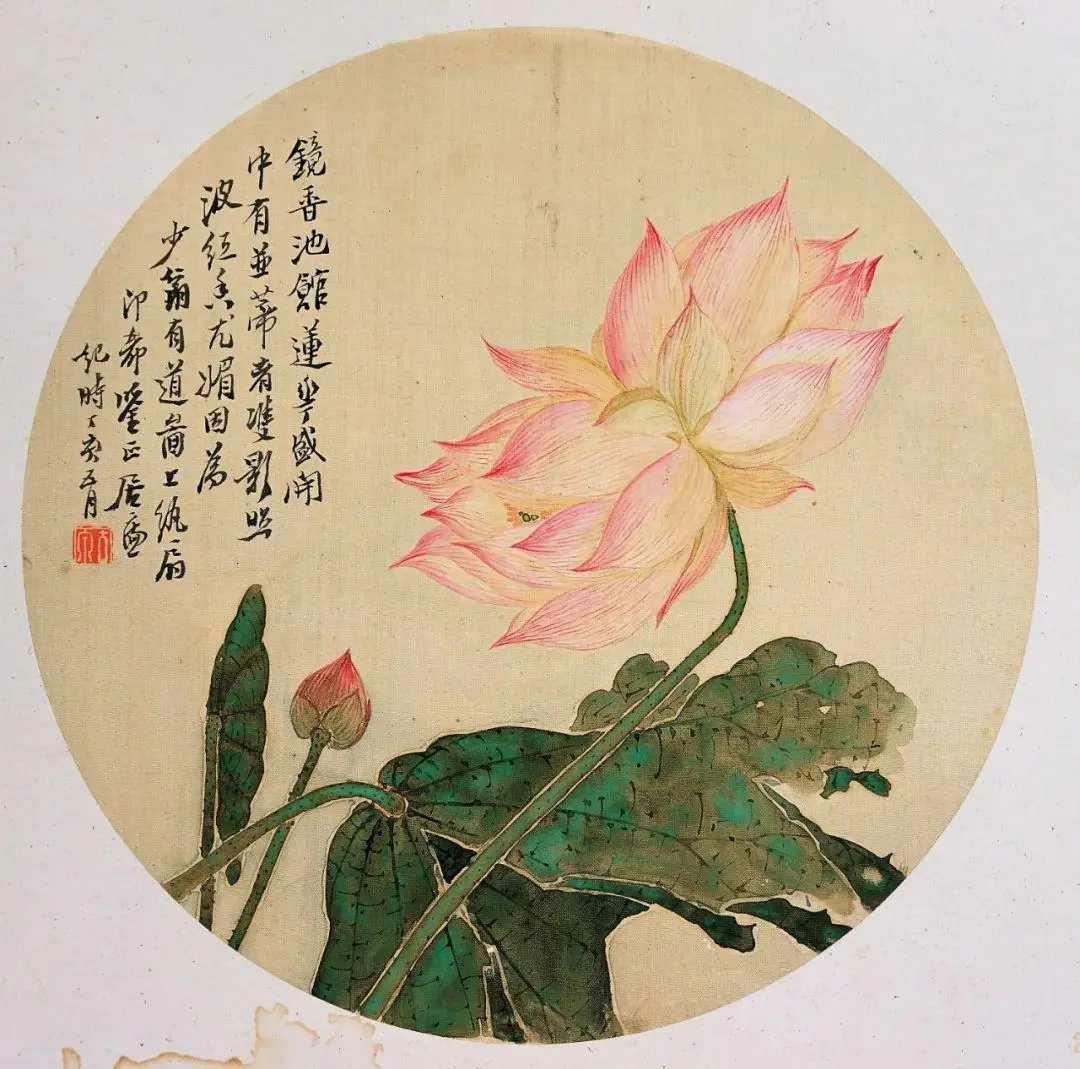 鏡香池館蓮華盛開
中有並蒂者雙影照
波紅香尤媚因為
少翁有道商上紈扇
印希鑒正居廉
紀時丁亥五月